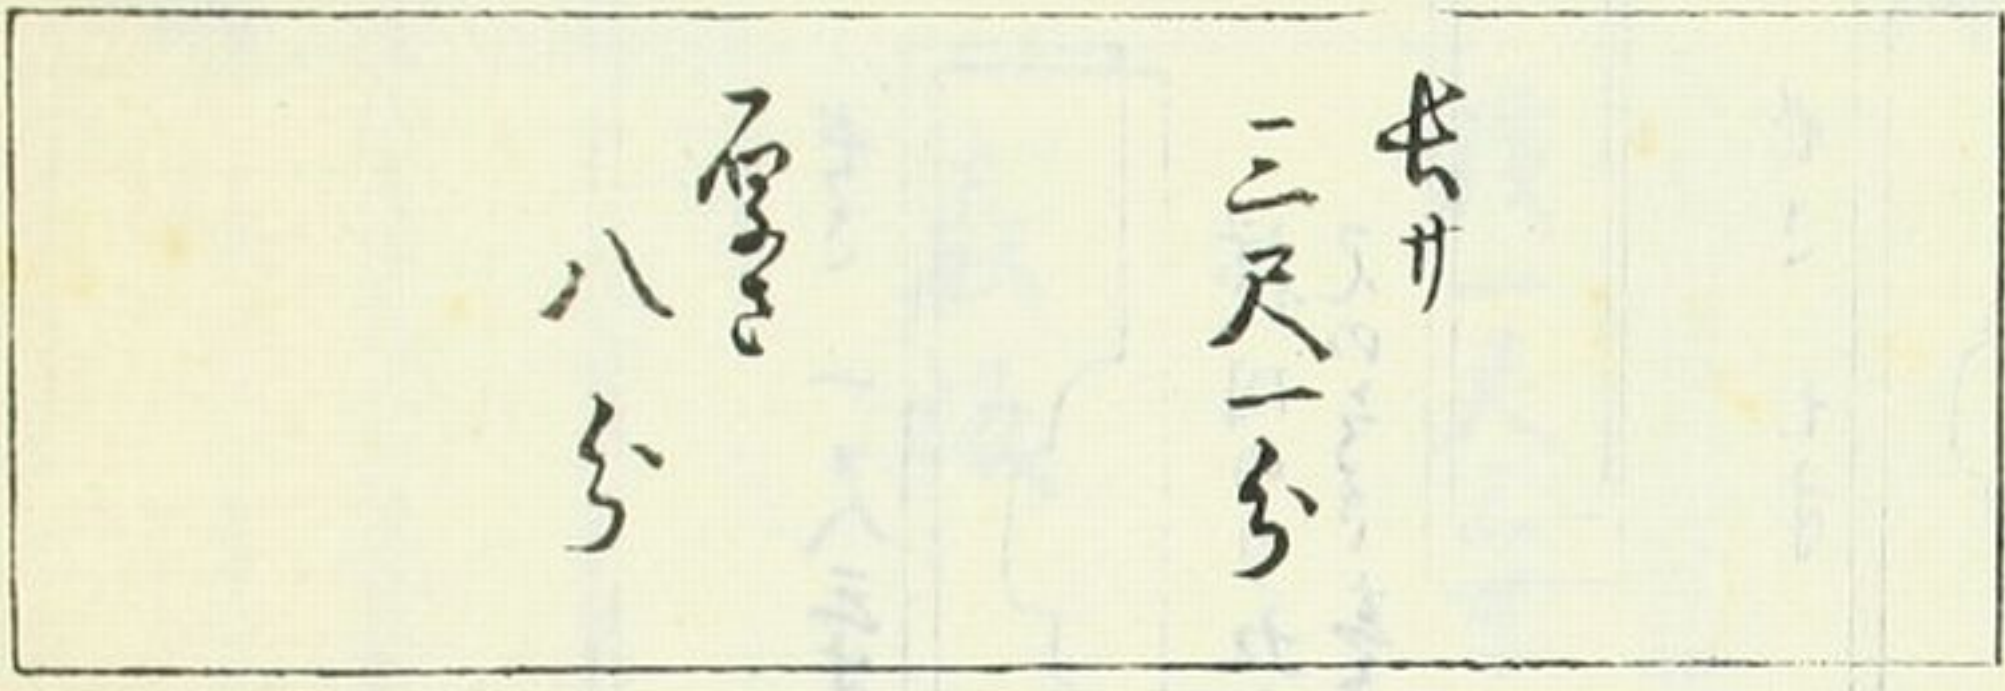 長サ
三尺一分
厚さ
八分